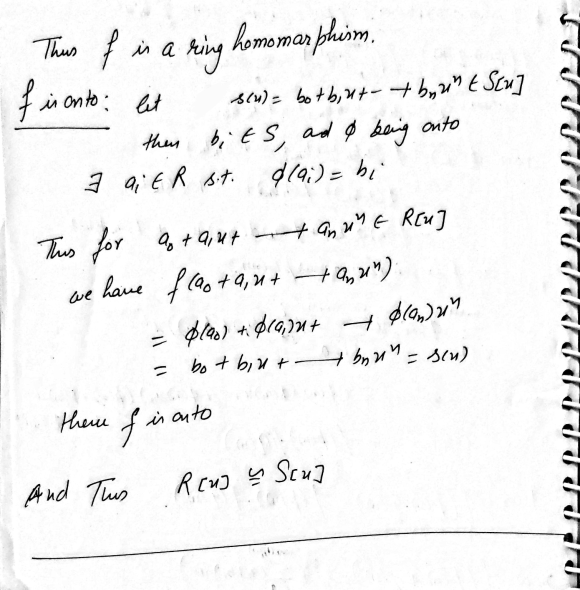 Thus f is a ring homomarphism.
f is onto: let s(x) = b₀ + b₁x + - → bₙxⁿ ∈ S[x]
then bᵢ ∈ S, and φ being onto
∃ aᵢ ∈ R s.t. φ(aᵢ) = bᵢ
Thus for a₀ + a₁x + —+ aₙxⁿ ∈ R[x]
we have f(a₀ + a₁x + —+ aₙxⁿ)
= φ(a₀) + φ(a₁)x + → φ(aₙ)xⁿ
= b₀ + b₁x + —+ bₙxⁿ = s(x)
f is onto
And Thus R[x] ≅ S[x]